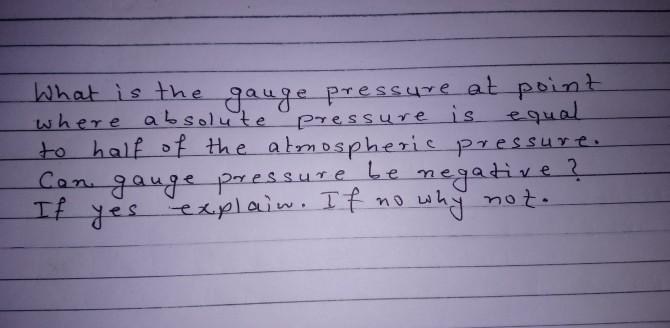 What is the gauge pressure at point
where absolute pressure is equal
to half of the atmospheric pressure.
Can gauge pressure be negative?
If yes explain. If no why not.